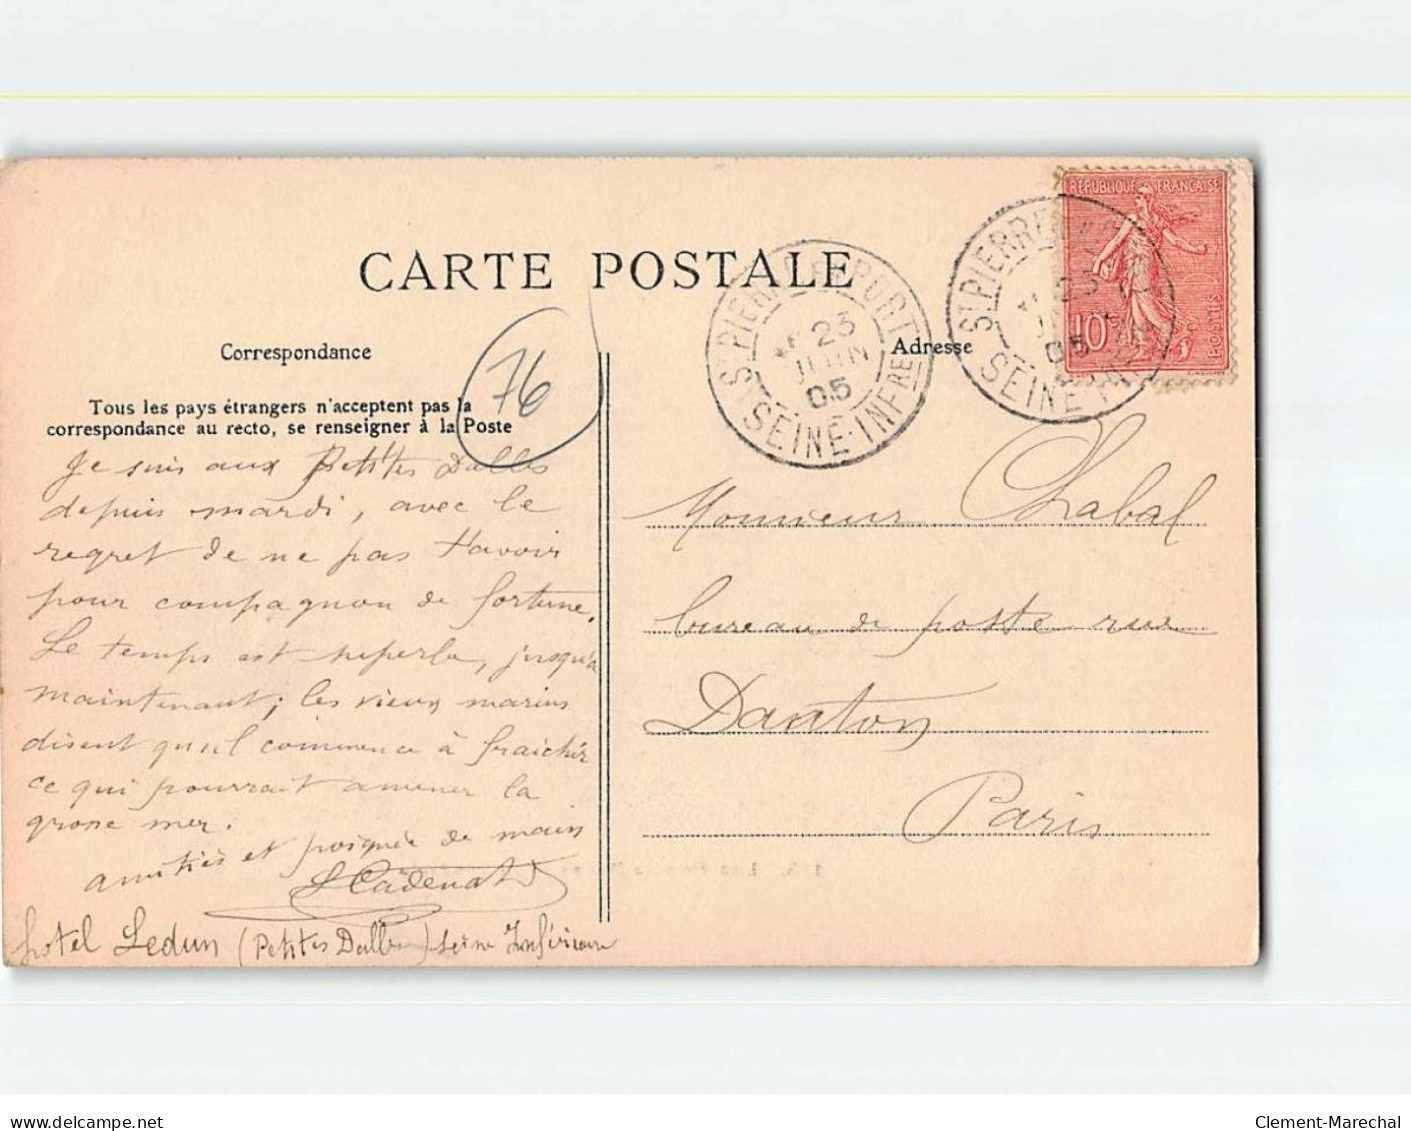 CARTE POSTALE
Correspondance
Tous les pays étrangers n'acceptent pas la
correspondance au recto, se renseigner à la Poste
76
Je suis aux Petites Dalles
depuis mardi, avec le
regret de ne pas t'avoir
pour compagnon de fortune.
Le temps est superbe, jusqu'à
maintenant; les vieux marins
disent qu'il commence à fraichir
ce qui pourrait amener la
grosse mer.
amitiés et poignée de main
L Cadenat
hotel Ledun (Petites Dalles) Seine Inférieure
ST PIERRE EN PORT
23
JUIN
05
SEINE-INFRE
Adresse
REPUBLIQUE FRANÇAISE
10c
POSTES
ST PIERRE
23
05
SEINE-INF
Monsieur Chabal
bureau de poste rue
Danton
Paris
delcampe.net
Clement-Marechal